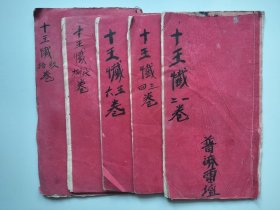 十王懺一二卷
普濟雷壇
十王懺三四卷
十王懺五六卷
十王懺卷
十王懺拾卷